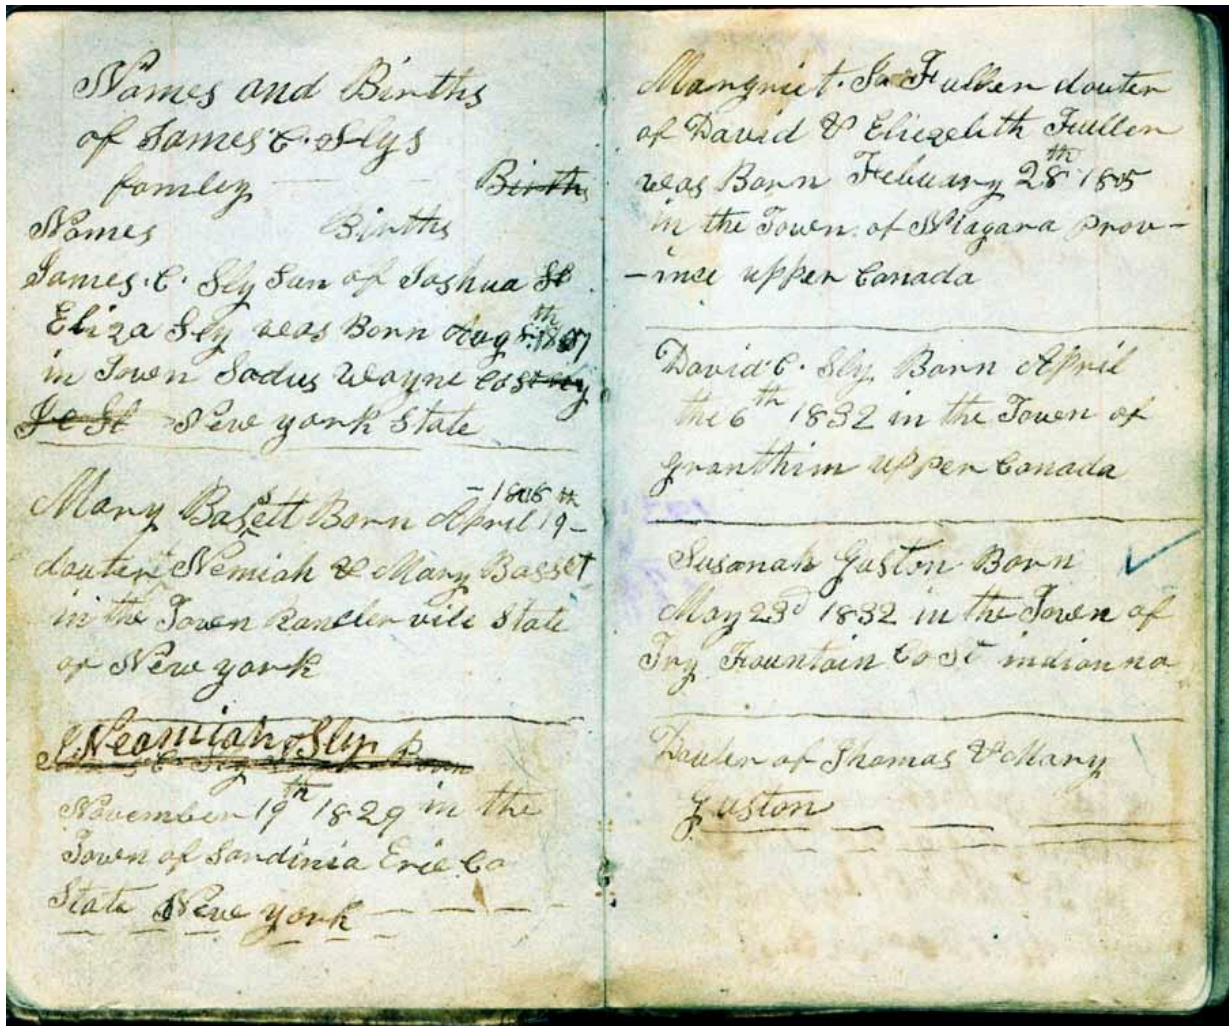 Names and Births
of James C. Slys
famley Birth
Names Births
James. C. Sly Sun of Joshua St
Eliza Sly was Born Aug 8th 1807
in Town Sodus Wayne Co
New york State
Mary Basett Born April 19th 1808
douter Nemiah & Mary Basset
in the Town vile State
of New york
Neamiah Sly Born
November 19th 1829 in the
Town of Sardinia Erie Co
State New york
Margriet. Fuller douter
of David & Eliezebith Fuller
was Born Febuary 28th 1805
in the Town of Niagara Prov-
-ince upper Canada
David C. Sly Born April
the 6th 1832 in the Town of
Granthim upper Canada
Susanah Guston Born
May 23d 1832 in the Town of
Fountain Co St indianna
Douter of Thomas & Mary
Guston